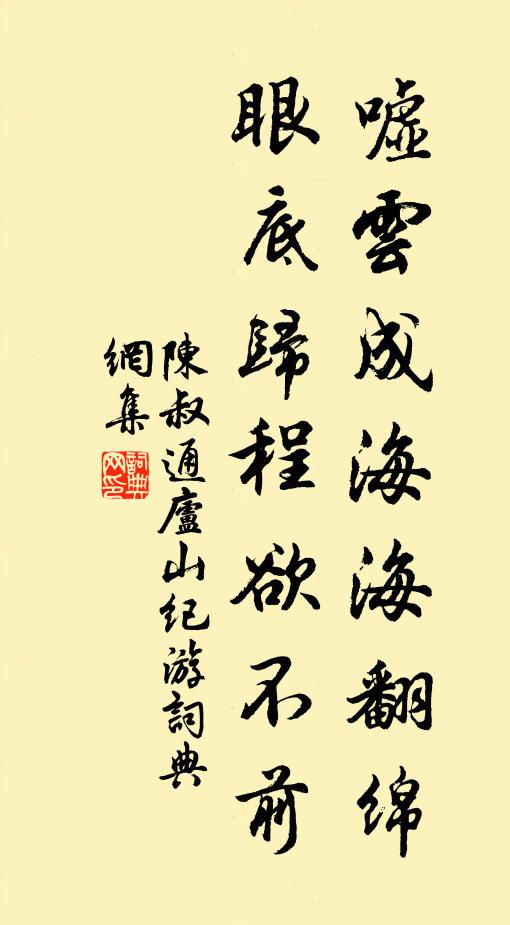 嘘雲成海海翻綿
眼底歸程欲不前
陳叔通廬山紀游詞典
網集
詞典網印